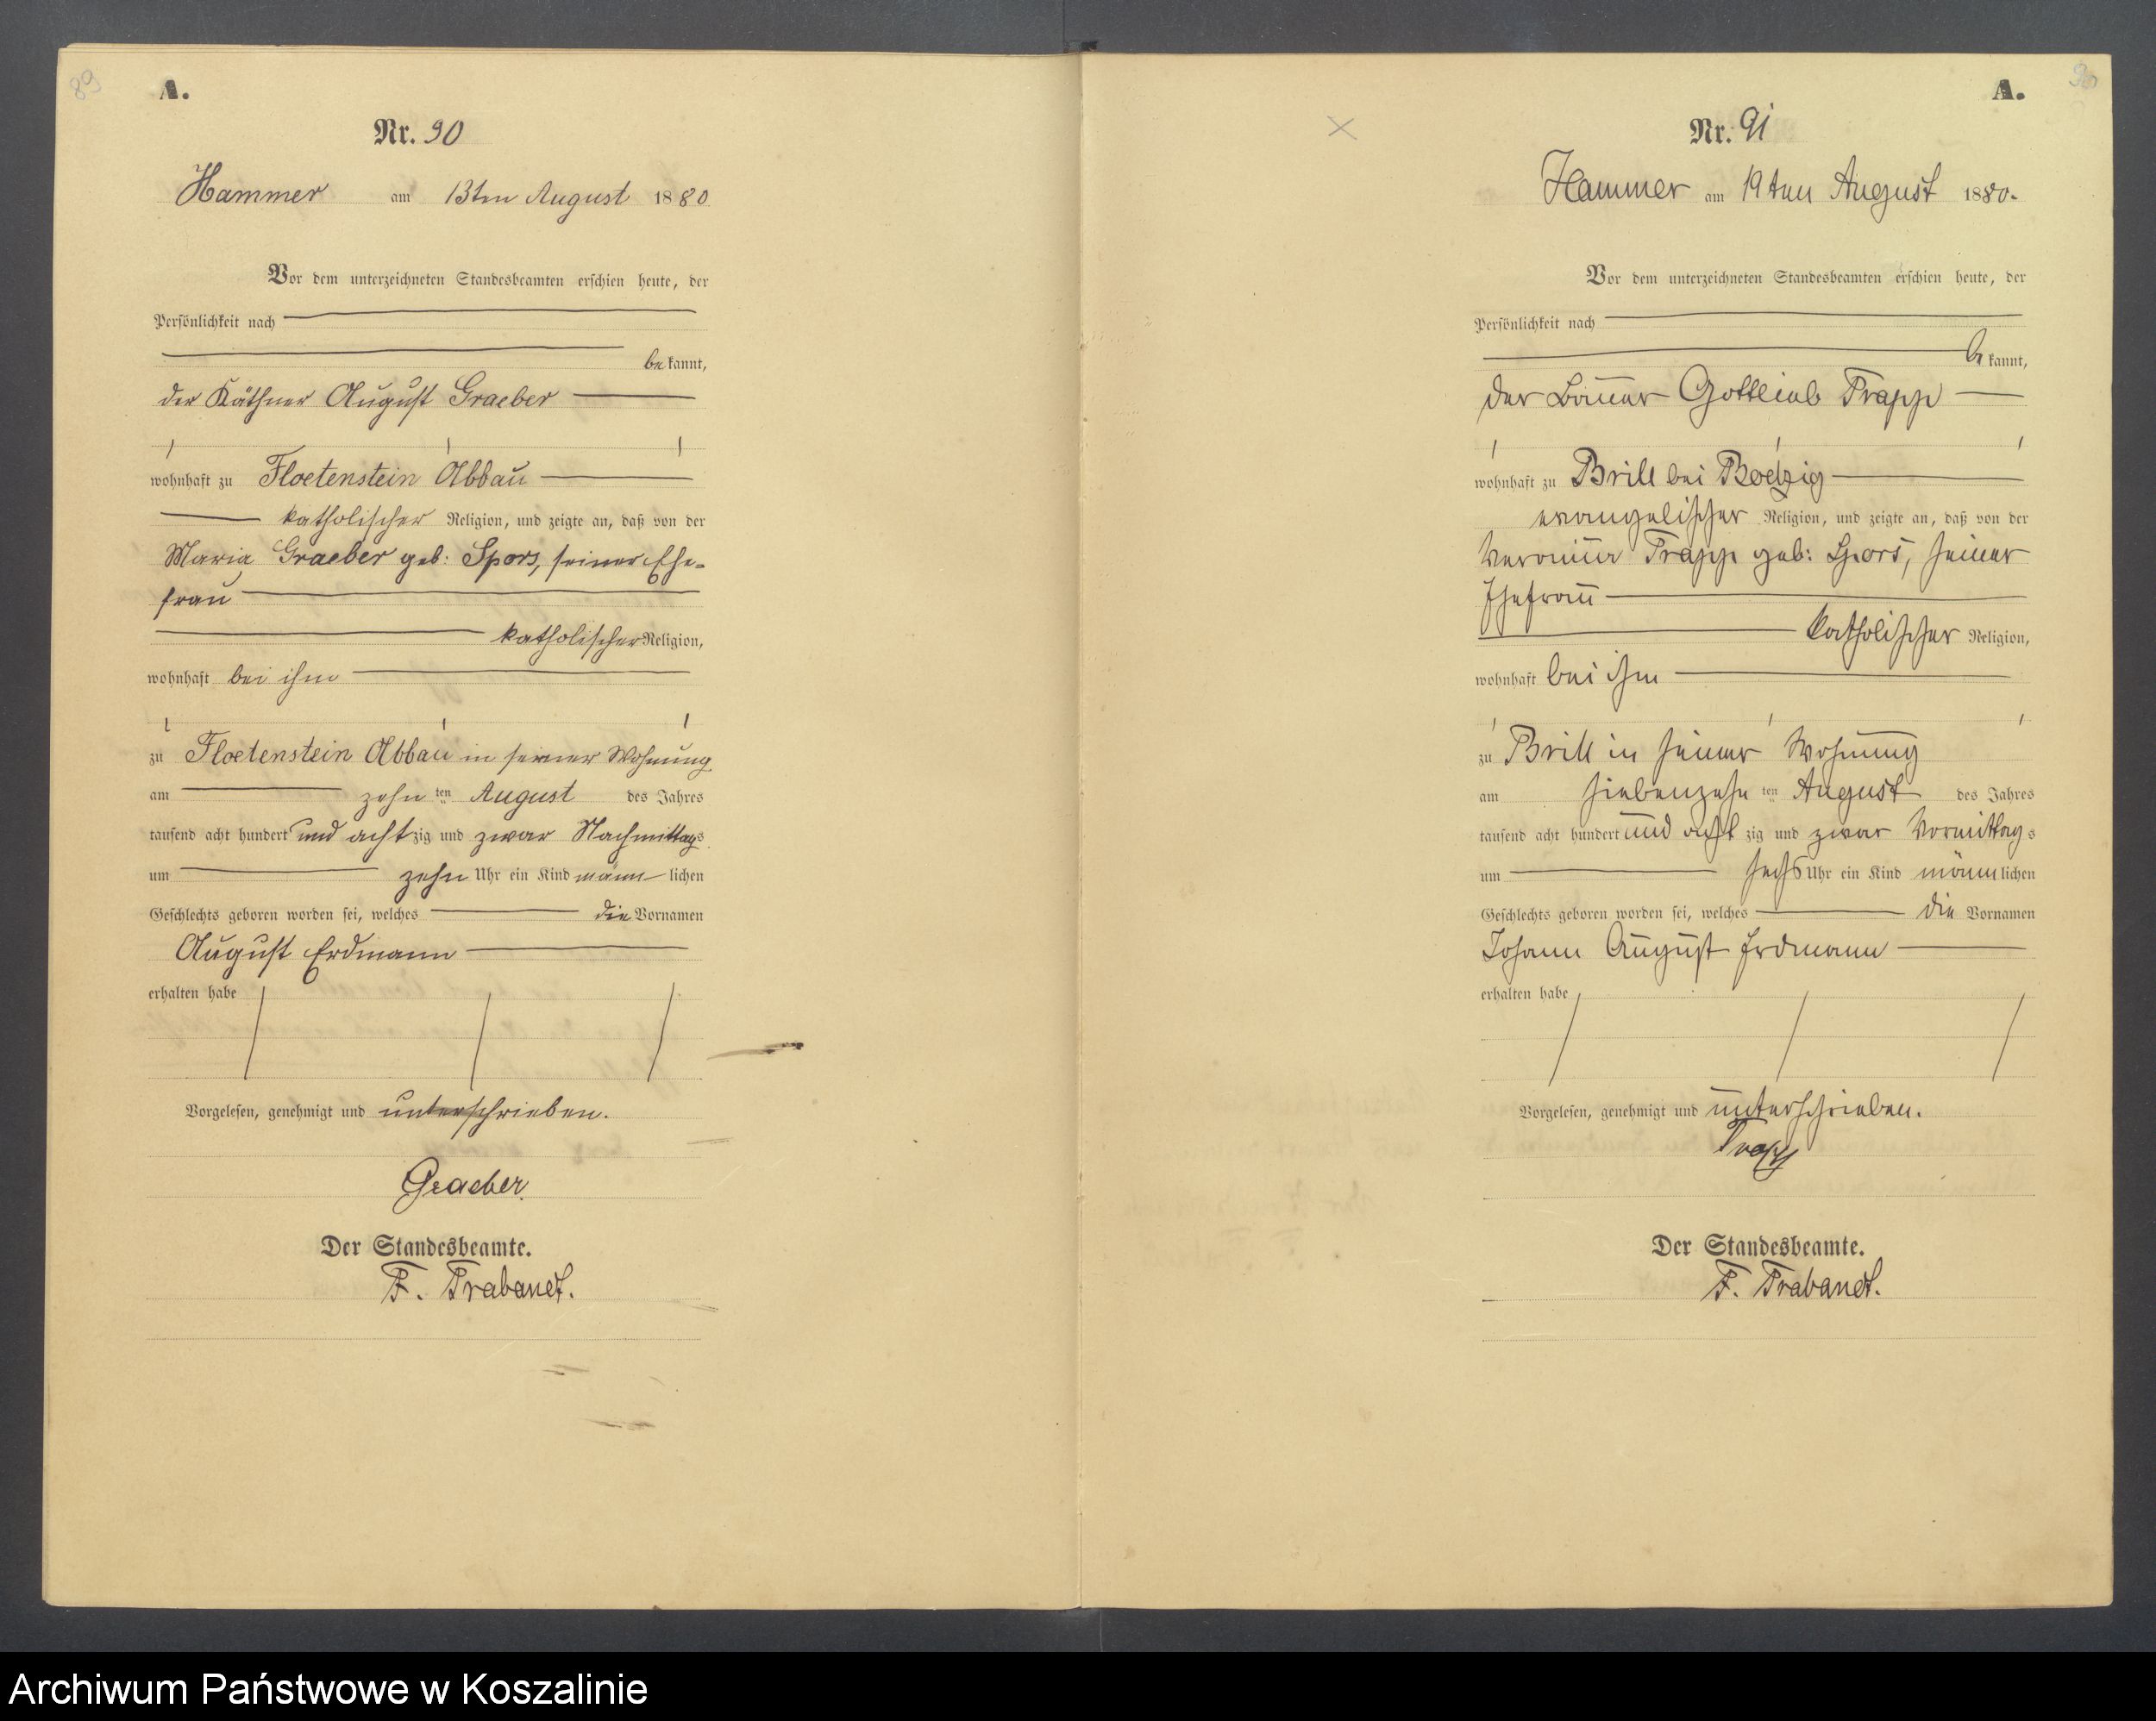 89
A.
Nr. 90
Hammer am 13ten August 1880
Vor dem unterzeichneten Standesbeamten erschien heute, der
Persönlichkeit nach
bekannt,
der Käthner August Graeber
wohnhaft zu Floetenstein Abbau
katholischer Religion, und zeigte an, daß von der
Maria Graeber geb: Spors, seiner Ehe-
frau
katholischer Religion,
wohnhaft bei ihm
zu Floetenstein Abbau in seiner Wohnung
am zehn ten August des Jahres
tausend acht hundert und achtzig und zwar Nachmittags
um zehn Uhr ein Kind männlichen
Geschlechts geboren worden sei, welches die Vornamen
August Erdmann
erhalten habe
Vorgelesen, genehmigt und unterschrieben.
Graeber
Der Standesbeamte.
F. Trabandt.
A.
Nr. 91
Hammer am 19ten August 1880.
Vor dem unterzeichneten Standesbeamten erschien heute, der
Persönlichkeit nach
bekannt,
der Bauer Gottlieb Trapp
wohnhaft zu Brill bei
evangelischer Religion, und zeigte an, daß von der
Veronika Trapp geb: Spors, seiner
Ehefrau
katholischer Religion,
wohnhaft bei ihm
zu Brill in seiner Wohnung
am siebenzehn ten August des Jahres
tausend acht hundert und achtzig und zwar Vormittags
um sechs Uhr ein Kind männlichen
Geschlechts geboren worden sei, welches die Vornamen
Johann August Erdmann
erhalten habe
Vorgelesen, genehmigt und unterschrieben.
Trapp
Der Standesbeamte.
F. Trabandt.
Archiwum Państwowe w Koszalinie